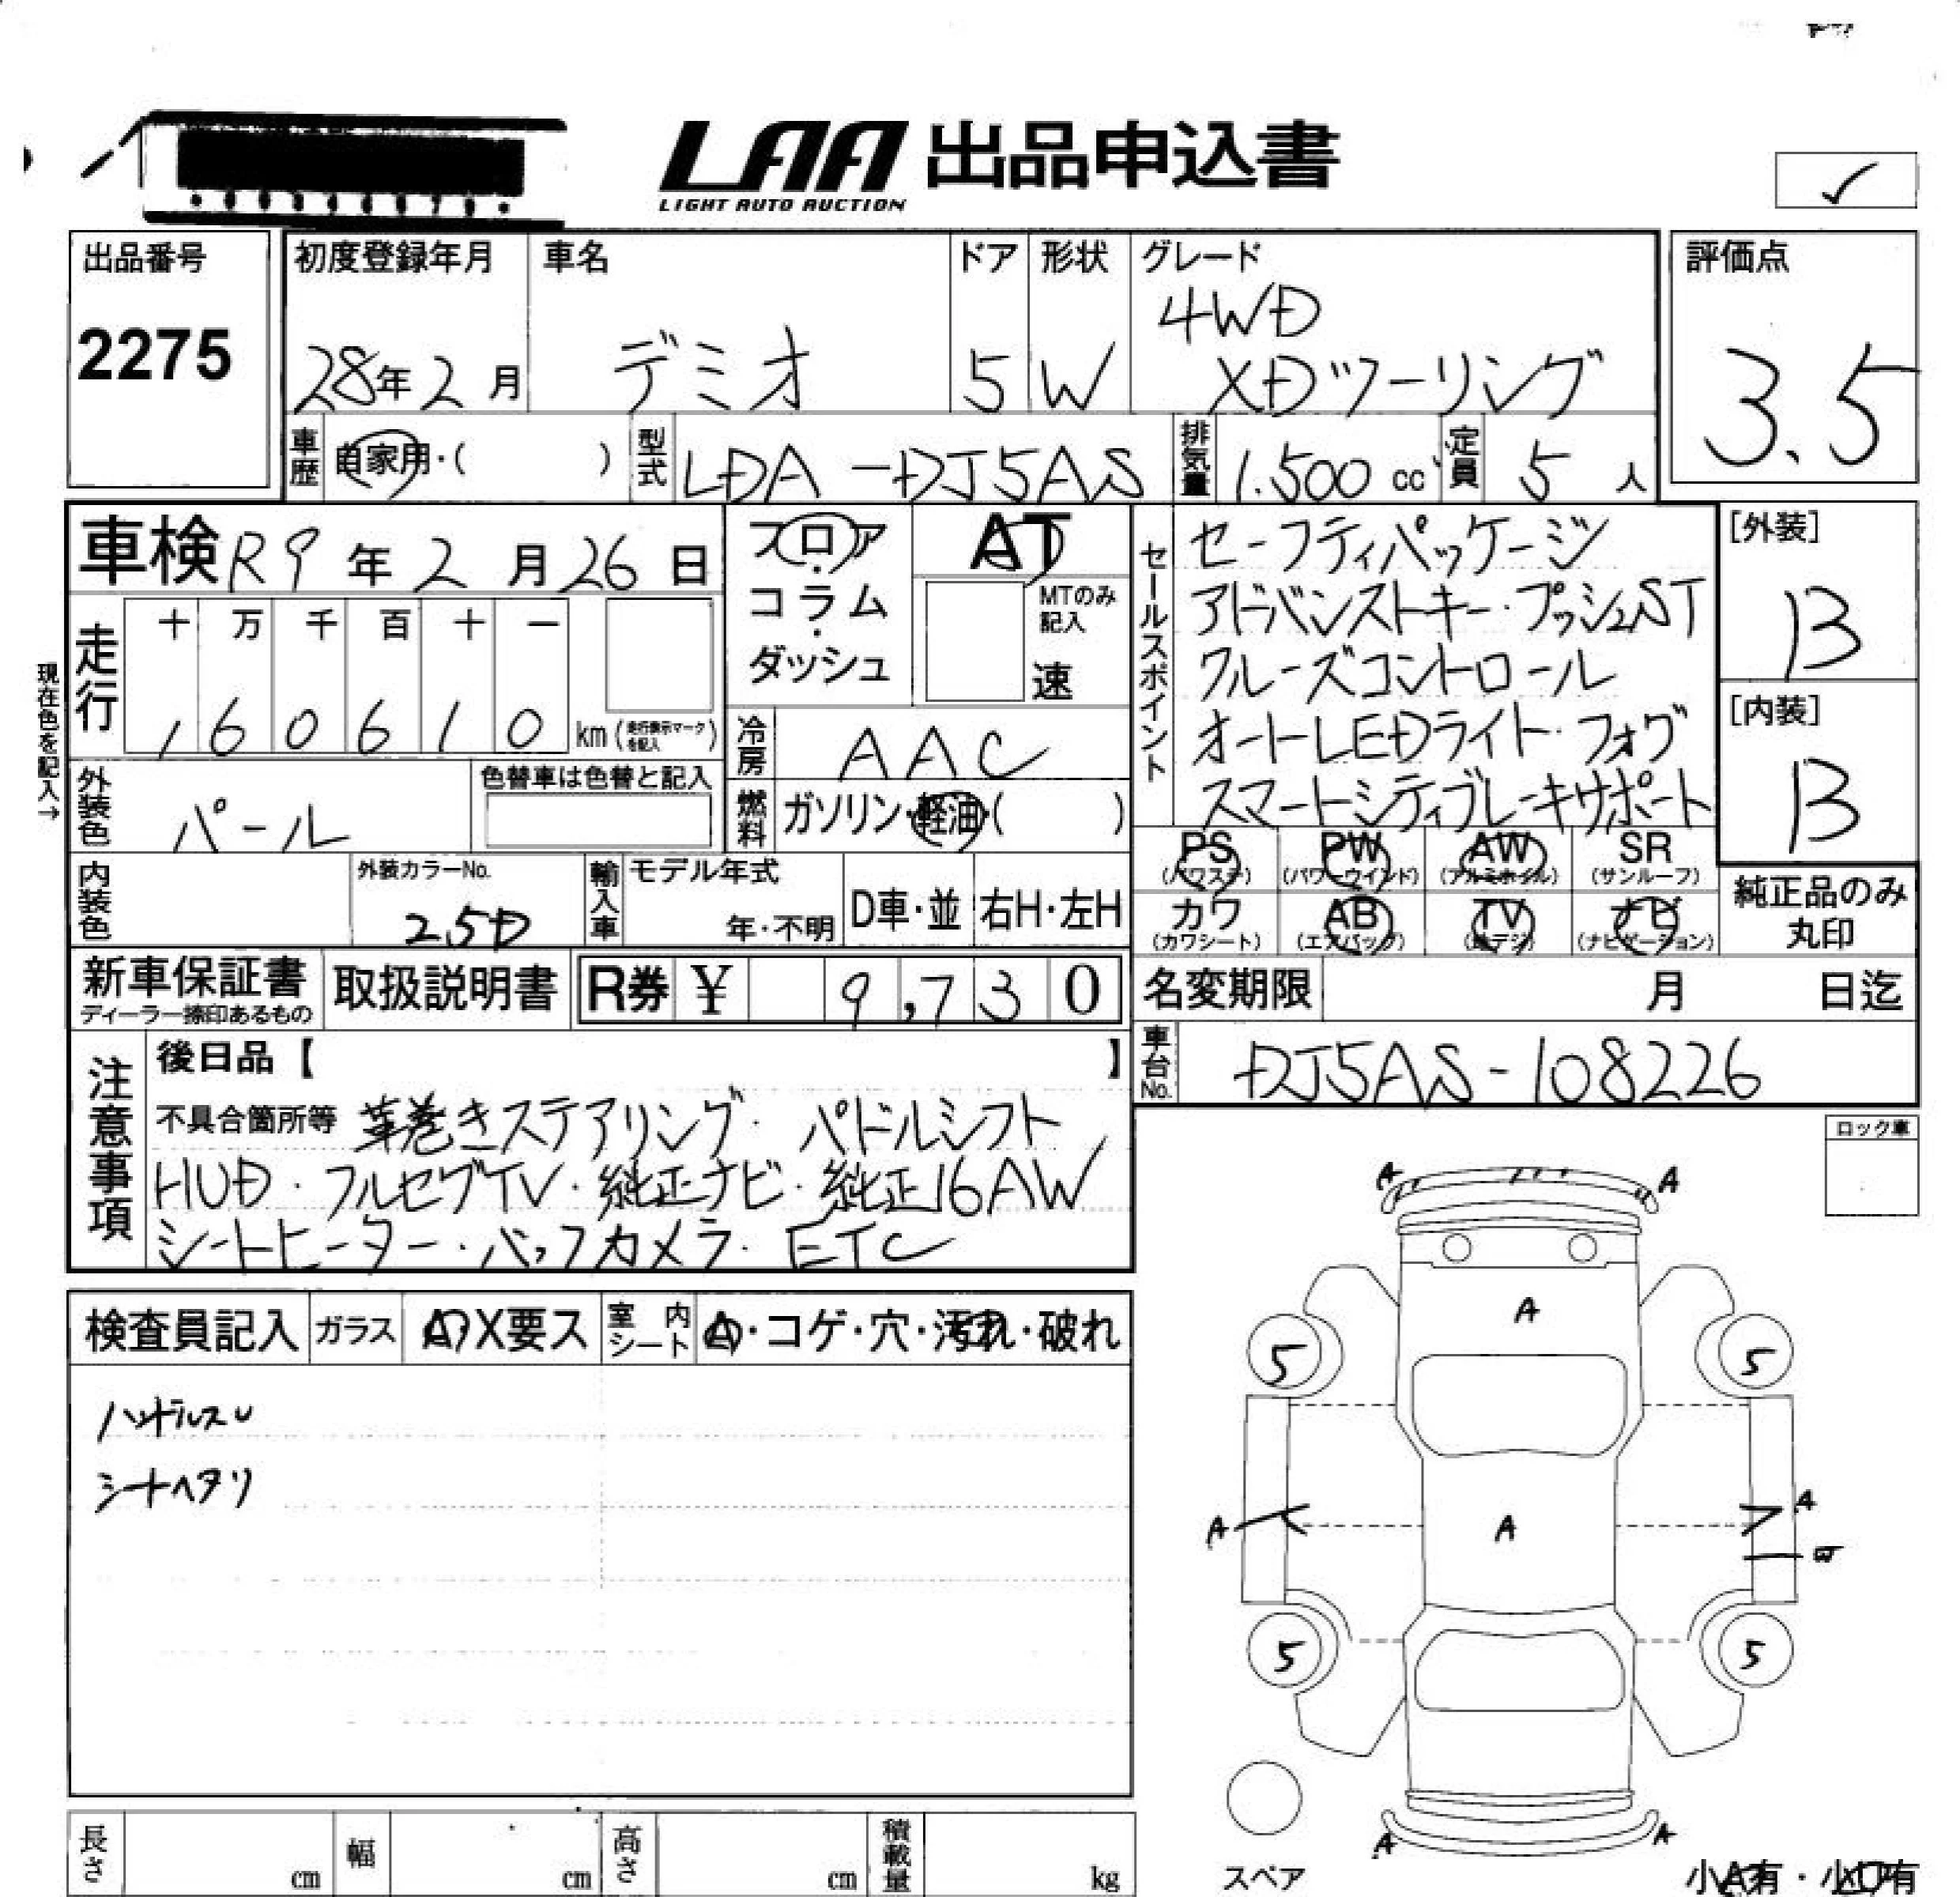 LAA 出品申込書
LIGHT AUTO AUCTION
✓
出品番号
2275
初度登録年月
28年2月
車名
デミオ
ドア
5
形状
W
グレード
4WD
XDツーリング
評価点
3.5
車歴
自家用・( )
型式
LDA-DJ5AS
排気量
1.500 cc
定員
5人
車検 R9年2月26日
フロア・コラム・ダッシュ
AT
MTのみ記入
速
現在色を記入→
走行
十 万 千 百 十 一
160610 km (走行表示マークを記入)
冷房
AAC
外装色
パール
色替車は色替と記入
燃料
ガソリン・軽油・( )
内装色
外装カラーNo.
25D
輸入車
モデル年式
年・不明
D車・並
右H・左H
セールスポイント
セーフティパッケージ
アドバンストキー・プッシュST
クルーズコントロール
オートLEDライト・フォグ
スマートシティブレーキサポート
[外装]
B
[内装]
B
PS (パワステ)
PW (パワーウインド)
AW (アルミホイル)
SR (サンルーフ)
カワ (カワシート)
AB (エアバッグ)
TV (地デジ)
ナビ (ナビゲーション)
純正品のみ丸印
新車保証書
ディーラー捺印あるもの
取扱説明書
R券 ¥ 9,730
名変期限 月 日迄
車台No.
DJ5AS-108226
注意事項
後日品【 】
不具合箇所等 革巻きステアリング・パドルシフト
HUD・フルセグTV・純正ナビ・純正16AW
シートヒーター・バックカメラ・ETC
ロック車
検査員記入
ガラス
A・X要ス
室内シート
A・コゲ・穴・汚れ・破れ
ハンドルスレ
シートヘタリ
A A
A
5 5
A A A
W
5 5
A A
スペア
小A有・小U有
長さ cm
幅 cm
高さ cm
積載量 kg